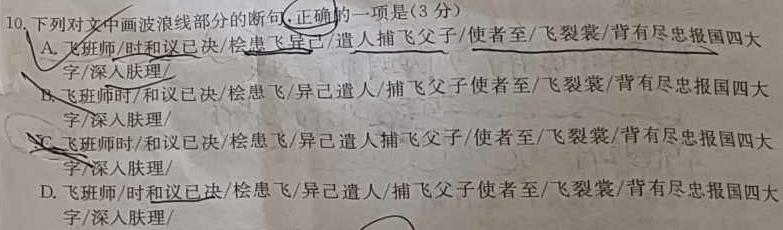 10. 下列对文中画波浪线部分的断句,正确的一项是(3 分)
A. 飞班师/时和议已决/桧患飞异己/遣人捕飞父子/使者至/飞裂裳/背有尽忠报国四大
字/深入肤理/
B. 飞班师时/和议已决/桧患飞/异己遣人/捕飞父子使者至/飞裂裳/背有尽忠报国四大
字/深入肤理/
C. 飞班师时/和议已决/桧患飞/异己遣人捕飞父子/使者至/飞裂裳/背有尽忠报国四大
字/深入肤理/
D. 飞班师/时和议已决/桧患飞/异己遣人/捕飞父子使者至/飞裂裳/背有尽忠报国四大
字/深入肤理/